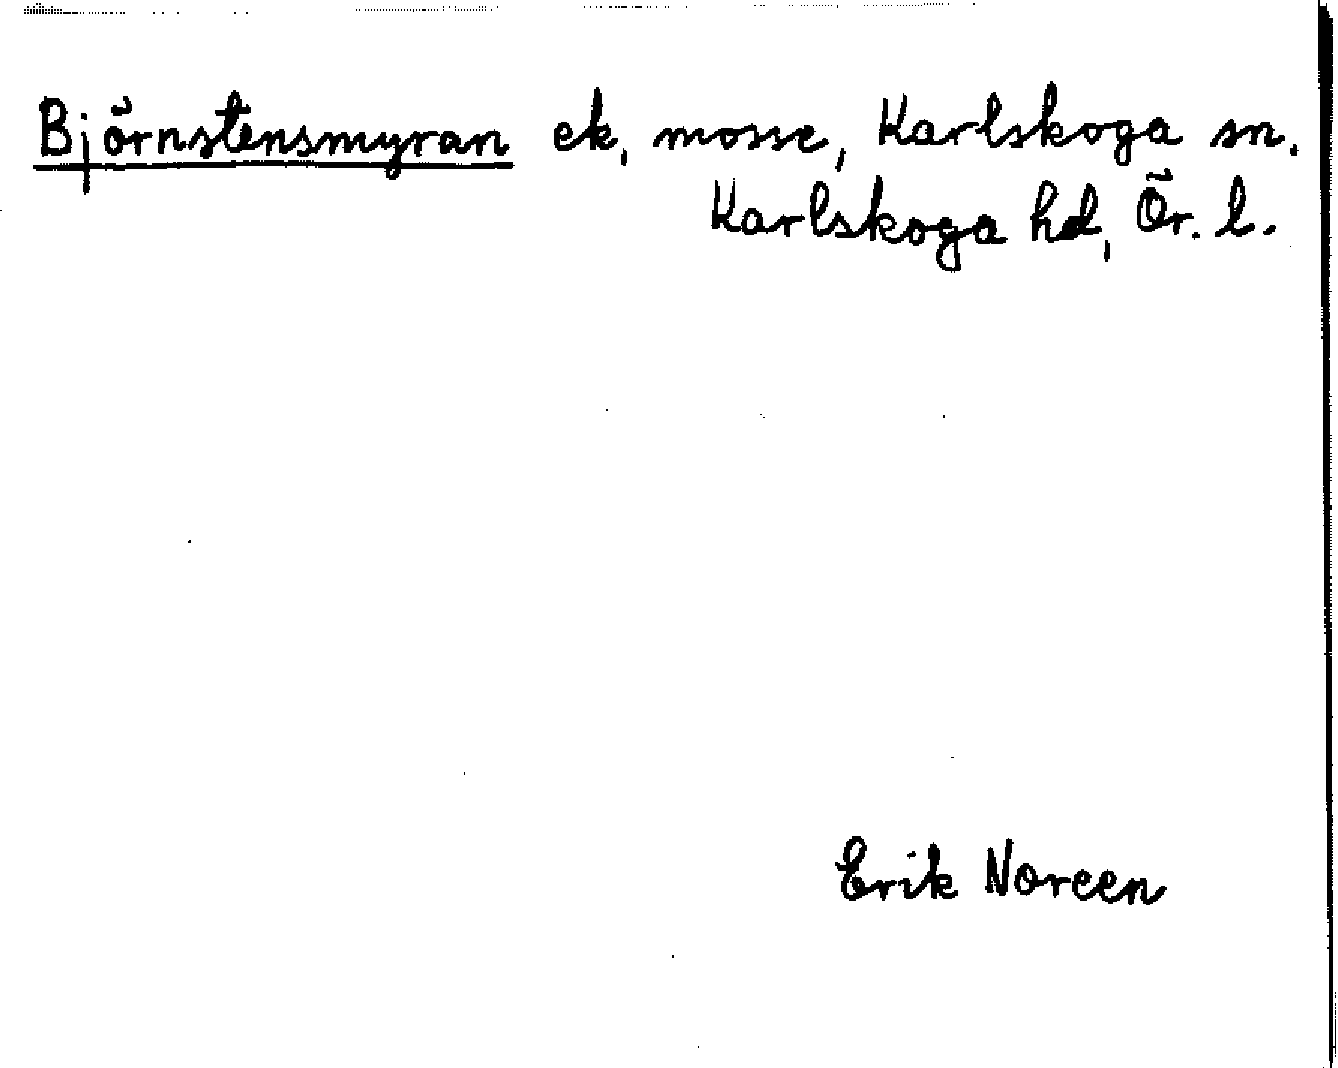 Björnstensmyran ek, mosse, Karlskoga sn.
Karlskoga hd, Ör. l.
Erik Noreen